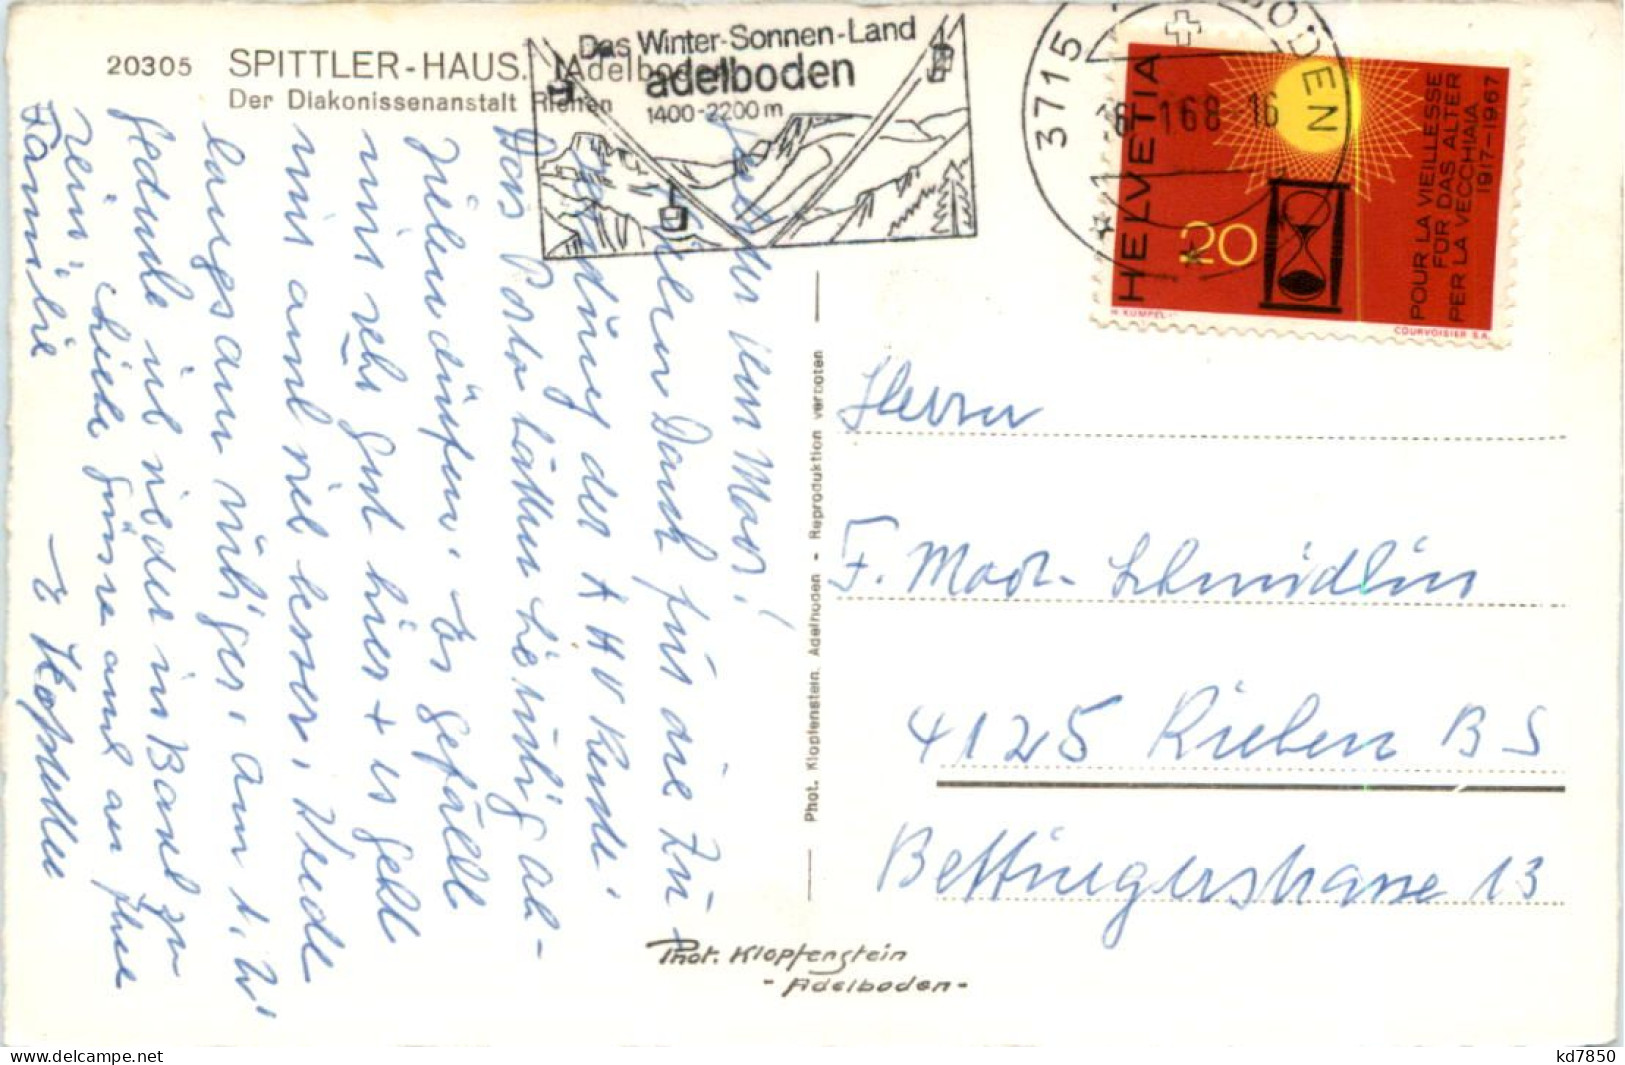 20305 SPITTLER-HAUS. Adelboden
Der Diakonissenanstalt Riehen
Das Winter-Sonnen-Land
adelboden
1400-2200 m
3715 ADELBODEN
-8. 1 68-16
HELVETIA
20
POUR LA VIEILLESSE
FÜR DAS ALTER
PER LA VECCHIAIA
1917-1967
H. KÜMPEL
COURVOISIER S.A.
Lieber Herr Mor!
Vielen Dank für die Zu-
sendung der AHV Rente.
Das Porto hätten Sie ruhig ab-
ziehen dürfen. Es gefällt
mir sehr gut hier + es geht
mir auch viel besser, werde
langsam ruhiger. Am
gedenke ich wieder in Basel zu
sein. Liebe Grüsse auch an Ihre
Familie
Phot. Klopfenstein, Adelboden - Reproduktion verboten
Herrn
F. Mor-Schmidlin
4125 Riehen BS
Bettingerstrasse 13
Phot. Klopfenstein
- Adelboden -
www.delcampe.net
kd7850